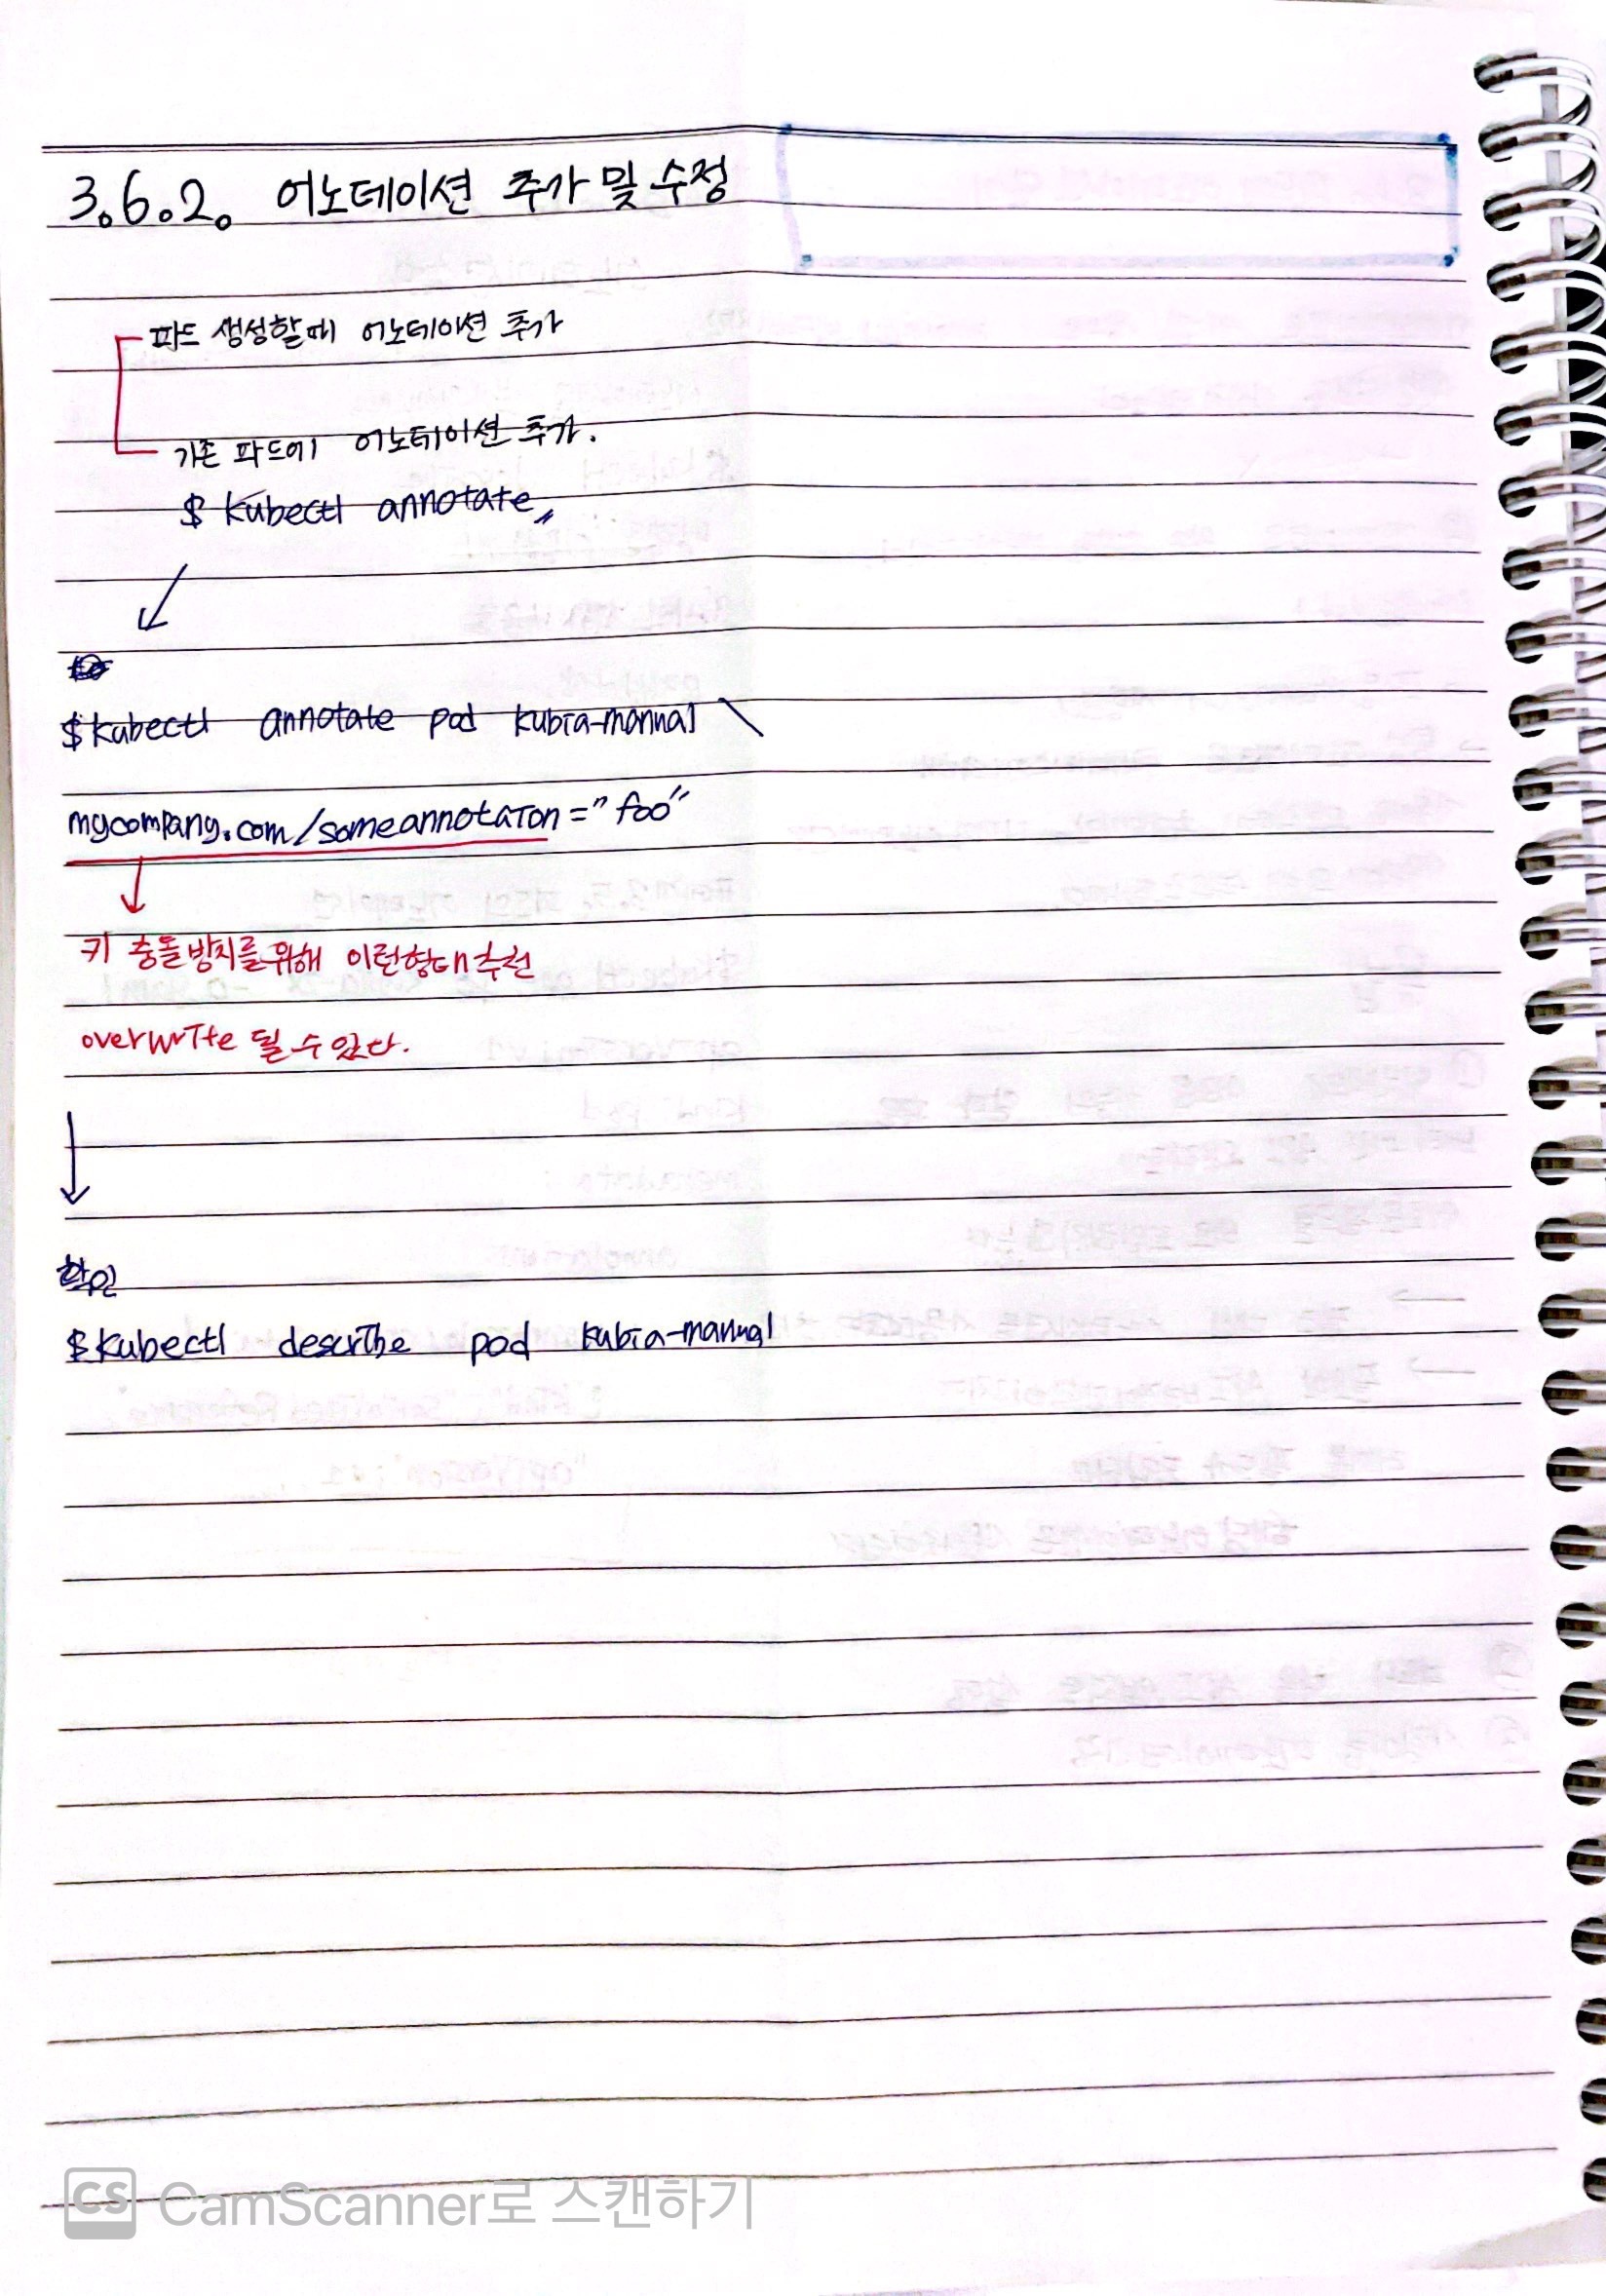 3.6.2. 어노테이션 추가 및 수정
파드 생성할때 어노테이션 추가
기존 파드에 어노테이션 추가.
$ kubectl annotate
$ kubectl annotate pod kubia-manual \
mycompany.com/someannotation="foo"
키 충돌방지를 위해 이런형태 추천
overwrite 될 수 있다.
확인
$ kubectl describe pod kubia-manual
CS CamScanner로 스캔하기